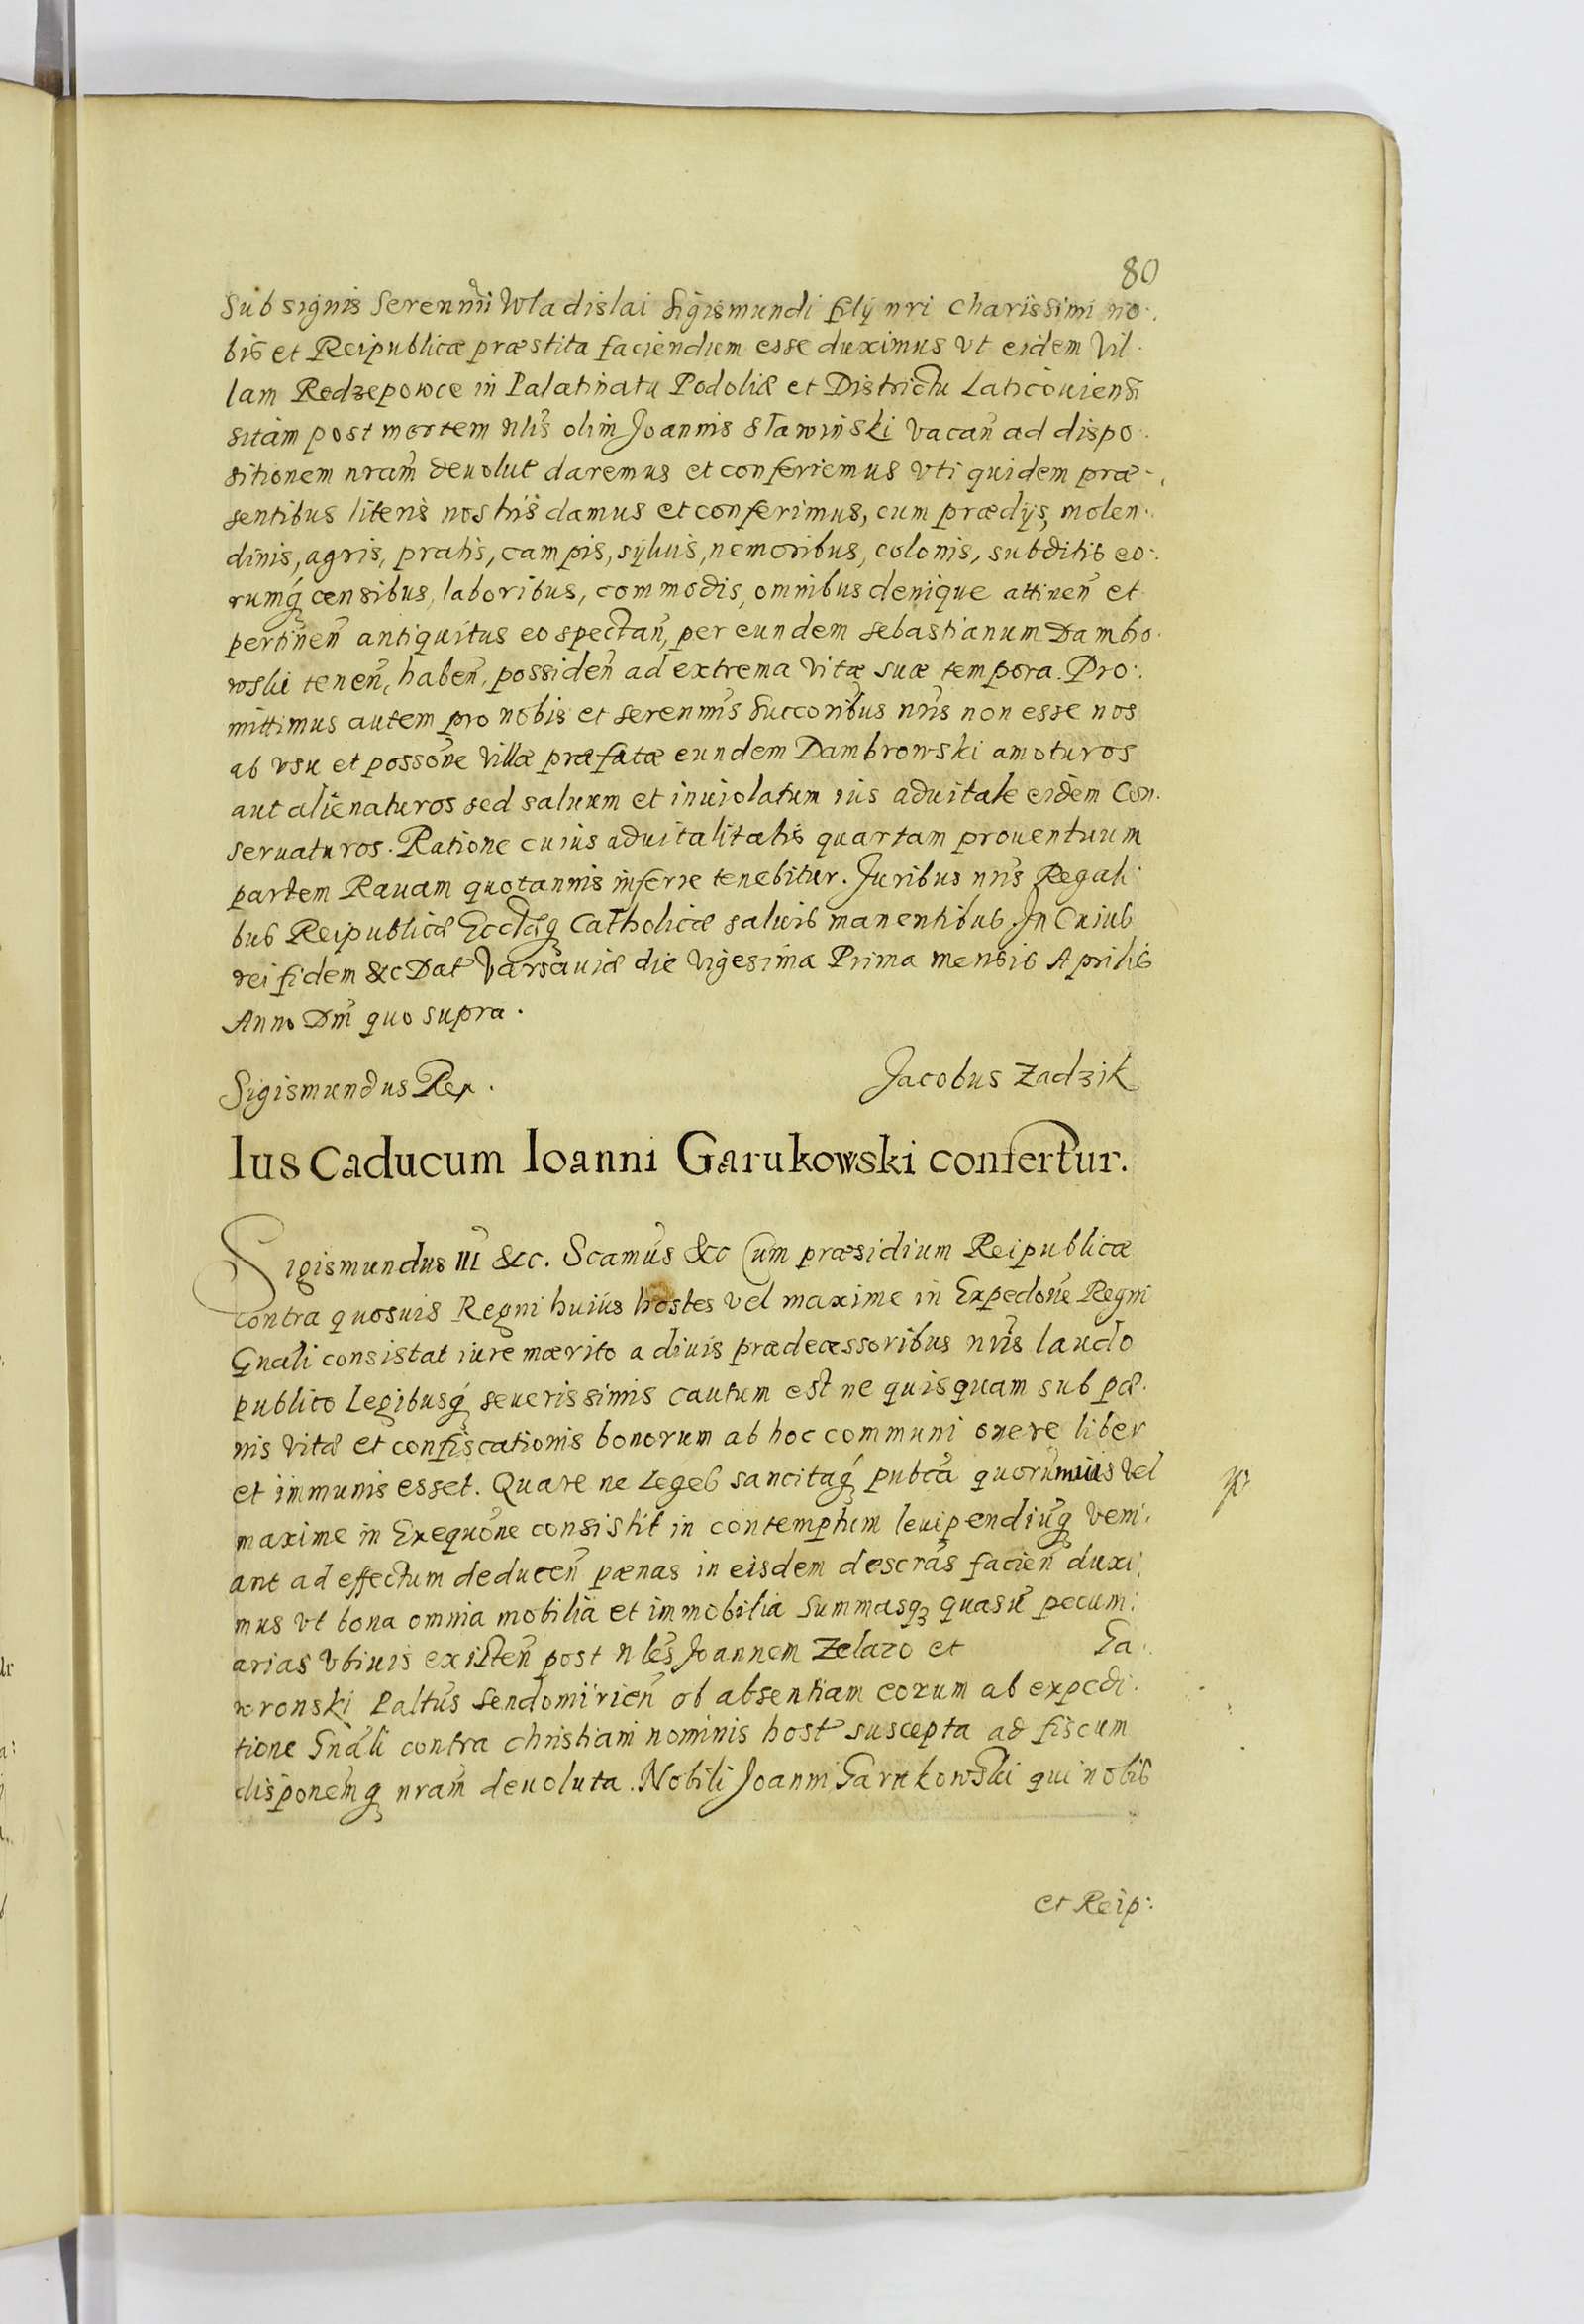 80
Sub signis Serenmi Wladislai Sigismundi filij nri charissimi no.
bis et Reipublicæ præstita faciendum esse duximus vt eidem Vil.
lam Redzepowce in Palatinatu Podoliæ et Districtu Laticouiensi
sitam post mortem nlis olim Joannis Sławinski vacañ ad dispo.
sitionem nram deuolut daremus et conferremus vti quidem præ-
sentibus literis nostris damus et conferimus, cum prædijs, molen.
dinis, agris, pratis, campis, syluis, nemoribus, colonis, subditis eo.
rumq́ censibus, laboribus, commodis, omnibus denique attineñ et
pertineñ antiquitus eo spectañ, per eundem Sebastianum Dambro.
wski teneñ, habeñ, possideñ ad extrema vitæ suæ tempora. Pro.
mittimus autem pro nobis et serenmis Succoribus nris non esse nos
ab vsu et possone villæ præfatæ eundem Dambrowski amoturos
aut alienaturos sed saluum et inuiolatum ius aduitale eidem Con.
seruaturos. Ratione cuius aduitalitatis quartam prouentuum
partem Rauam quotannis inferre tenebitur. Juribus nris Regali
bus Reipublicæ Ecctæq Catholicæ saluis manentibus. In Cuius
rei fidem &c Dat Varsauiæ die Vigesima Prima mensis Aprilis
Anno Dni quo supra.
Sigismundus Rex.
Jacobus Zadzik
Ius Caducum Ioanni Garukowski confertur.
Sigismundus III &c. Scamus &c Cum præsidium Reipublicæ
contra quosuis Regni huius hostes vel maxime in Expedone Regni
Gnali consistat iure mærito a diuis prædecessoribus nris laudo
publico Legibusq́ seuerissimis cautum est ne quisquam sub pœ.
nis vitæ et confiscationis bonorum ab hoc communi onere liber
et immunis esset. Quare ne Leges sancitaq́ pubca quorumuis vel
maxime in Exequone consistit in contemptum leuipendiuq́ veni.
ant ad effectum deduceñ pænas in eisdem descras facień duxi.
mus vt bona omnia mobilia et immobilia Summasq quasu pecuni.
arias vbiuis existeñ post nles Joannem Zelazo et Ga.
wronski Paltus Sendomirień ob absentiam eorum ab expedi.
tione Gnali contra christiani nominis host suscepta ad fiscum
disponemq nram deuoluta. Nobili Joanni Garukowski qui nobis
et Reip: